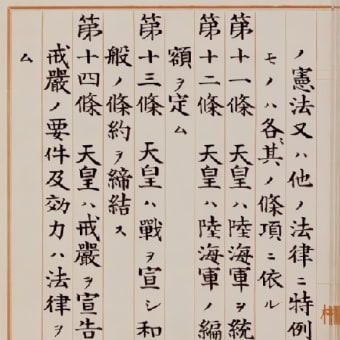 ノ憲法又ハ他ノ法律ニ特例
モノハ各其ノ條項ニ依ル
第十一條　天皇ハ陸海軍ヲ統
第十二條　天皇ハ陸海軍ノ編
額ヲ定ム
第十三條　天皇ハ戰ヲ宣シ和
般ノ條約ヲ締結ス
第十四條　天皇ハ戒嚴ヲ宣告
戒嚴ノ要件及效力ハ法律ヲ
ム